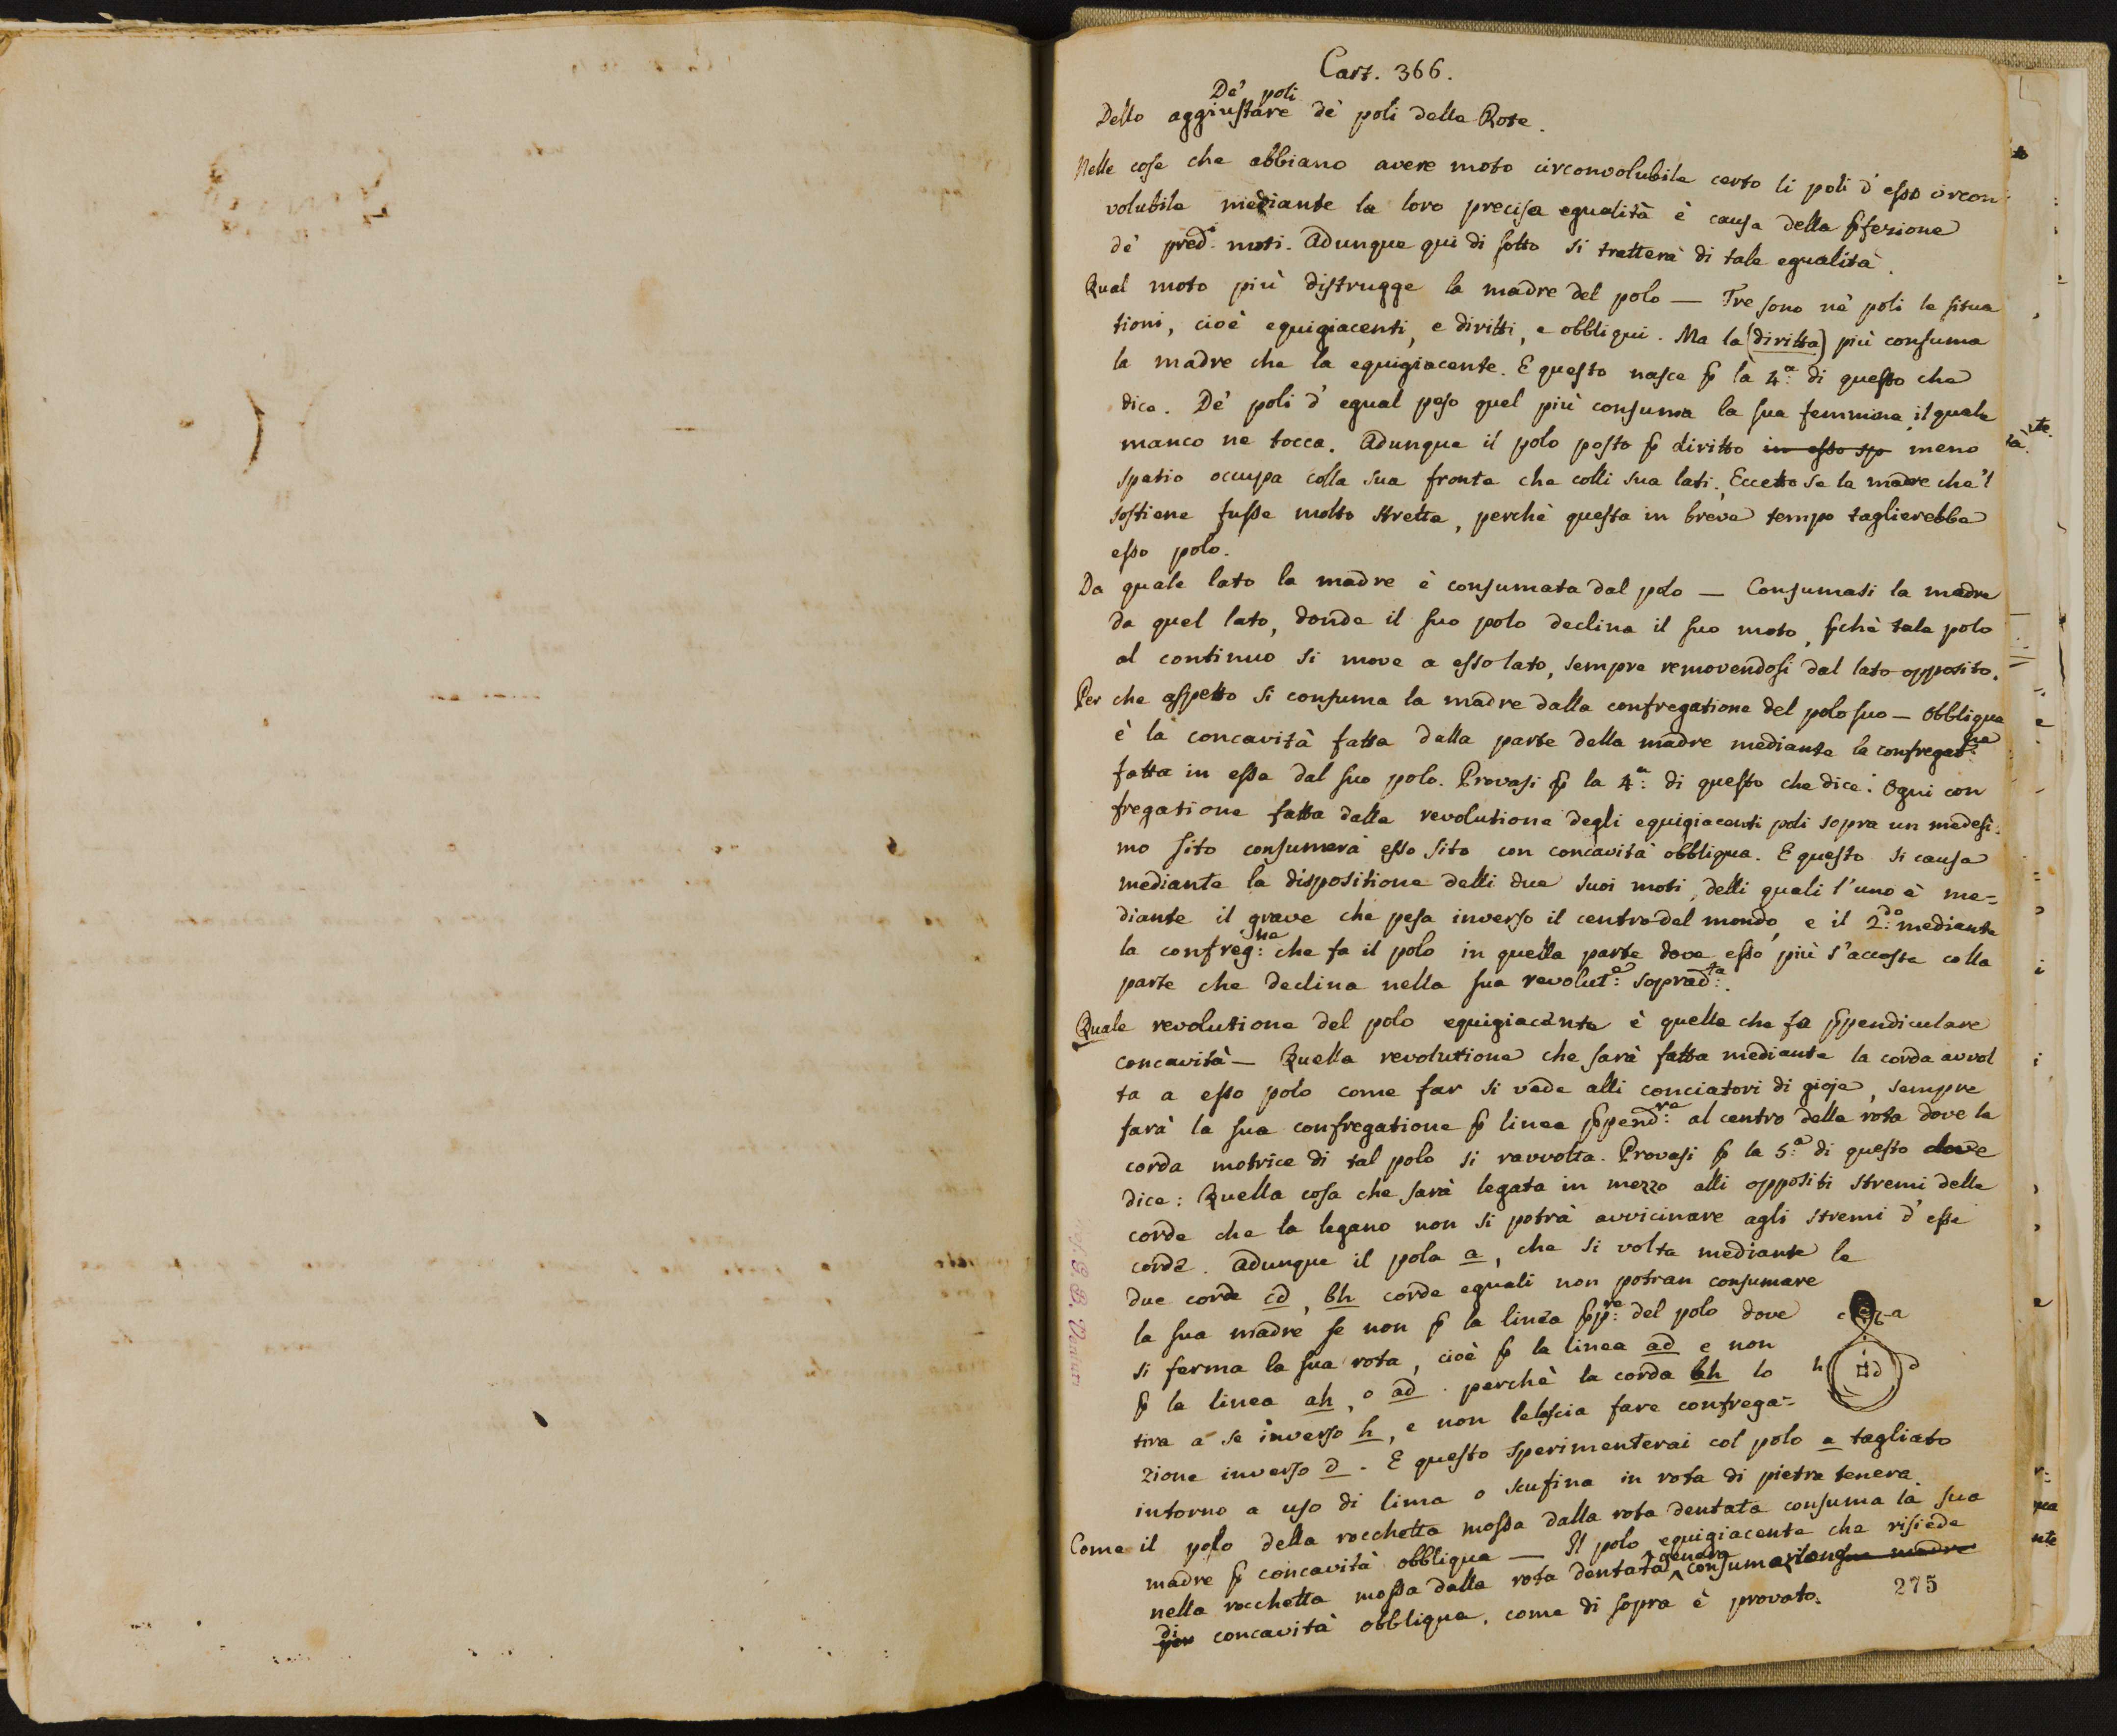 Cart. 366.
De' poli
Dello aggiustare de' poli delle Rote.
Nelle cose che abbiano avere moto circonvolubile certo li poli d' esso circon
volubile mediante la loro precisa egualità è causa della pfezione
de' pred.i moti. Adunque qui di sotto si tratterà di tale egualità.
Qual moto più distrugge la madre del polo — Tre sono ne' poli le situa
tioni, cioè equigiacenti, e diritti, e obbliqui. Ma la (diritta) più consuma
la madre che la equigiacente. E questo nasce p la 4.a di questo che
dice. De' poli d' egual peso quel più consuma la sua femmina, il quale
manco ne tocca. Adunque il polo posto p diritto in esso sp meno
spatio occupa colla sua fronte che colli sua lati. Eccetto se la madre che 'l
sostiene fusse molto stretta, perchè questa in breve tempo taglierebbe
esso polo.
Da quale lato la madre è consumata dal polo — Consumasi la madre
da quel lato, donde il suo polo declina il suo moto, pchè tale polo
al continuo si move a esso lato, sempre removendosi dal lato opposito.
Per che aspetto si consuma la madre dalla confregatione del polo suo — Obbliqua
è la concavità fatta dalla parte della madre mediante la confregat.ne
fatta in essa dal suo polo. Provasi p la 4.a di questo che dice: Ogni con
fregatione fatta dalla revolutione degli equigiacenti poli sopra un medesi:
mo sito consumerà esso sito con concavità obbliqua. E questo si causa
mediante la dispositione delli due suoi moti, delli quali l'uno è me=
diante il grave che pesa inverso il centro del mondo, e il 2.do mediante
la confreg.ne che fa il polo in quella parte dove esso più s'accosta colla
parte che declina nella sua revolut.e soprad.ta.
Quale revolutione del polo equigiacente è quella che fa ppendiculare
concavità — Quella revolutione che sarà fatta mediante la corda avvol
ta a esso polo come far si vede alli conciatori di gioje, sempre
farà la sua confregatione p linea ppend.re al centro della rota dove la
corda motrice di tal polo si ravvolta. Provasi p la 5.a di questo dove
dice: Quella cosa che sarà legata in mezzo alli oppositi stremi delle
corde che la legano non si potrà avvicinare agli stremi d' esse
corde. Adunque il polo a, che si volta mediante le
due corde cd, bh corde eguali non potran consumare
la sua madre se non p la linea pp.re del polo dove
si ferma la sua rota, cioè p la linea ad e non
p la linea ah, o ad. perchè la corda bh lo
tira a se inverso h, e non lelascia fare confrega=
zione inverso d. E questo sperimenterai col polo a tagliato
intorno a uso di lima o scufina in rota di pietra tenera.
c b a
h d d
Come il polo della rocchetta mossa dalla rota dentata consuma la sua
madre p concavità obbliqua — Il polo equigiacente che risiede
nella rocchetta mossa dalla rota dentata genera consumazione sua madre
di per concavità obbliqua, come di sopra è provato.
275